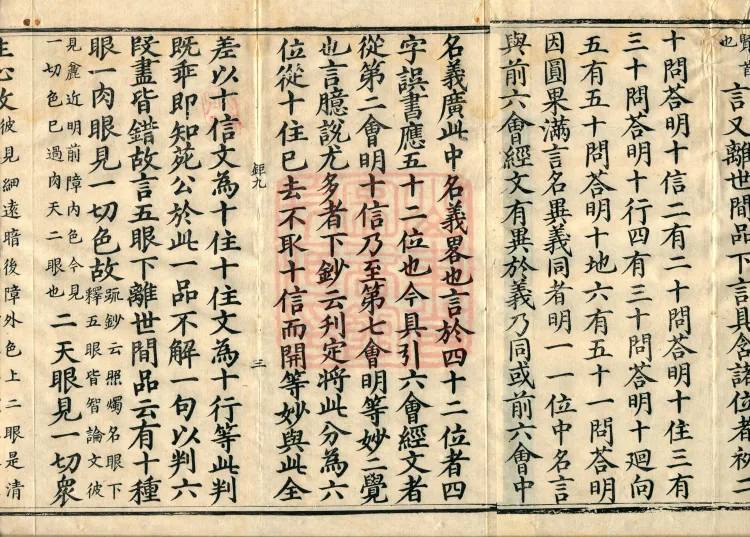 賢首
也
言又離世間品下言具含諸位者初二
十問答明十信二有二十問答明十住三有
三十問答明十行四有三十問答明十廻向
五有五十問答明十地六有五十一問答明
因圓果滿言名異義同者明一一位中名言
與前六會經文有異於義乃同或前六會中
名義廣此中名義畧也言於四十二位者四
字誤書應五十二位也今具引六會經文者
從第二會明十信乃至第七會明等妙二覺
也言臆說尤多者下鈔云刋定將此分為六
位從十住已去不取十信而開等妙與此全
鉅九
三
差以十信文為十住十住文為十行等此判
既乖即知苑公於此一品不解一句以判六
段盡皆錯故言五眼下離世間品云有十種
眼一肉眼見一切色故
疏鈔云照燭名眼下
釋五眼皆智論文彼
二天眼見一切衆
見麄近明前障內色今見
一切色已過肉天二眼也
生心故
彼見細遠暗後障外色上二眼是清